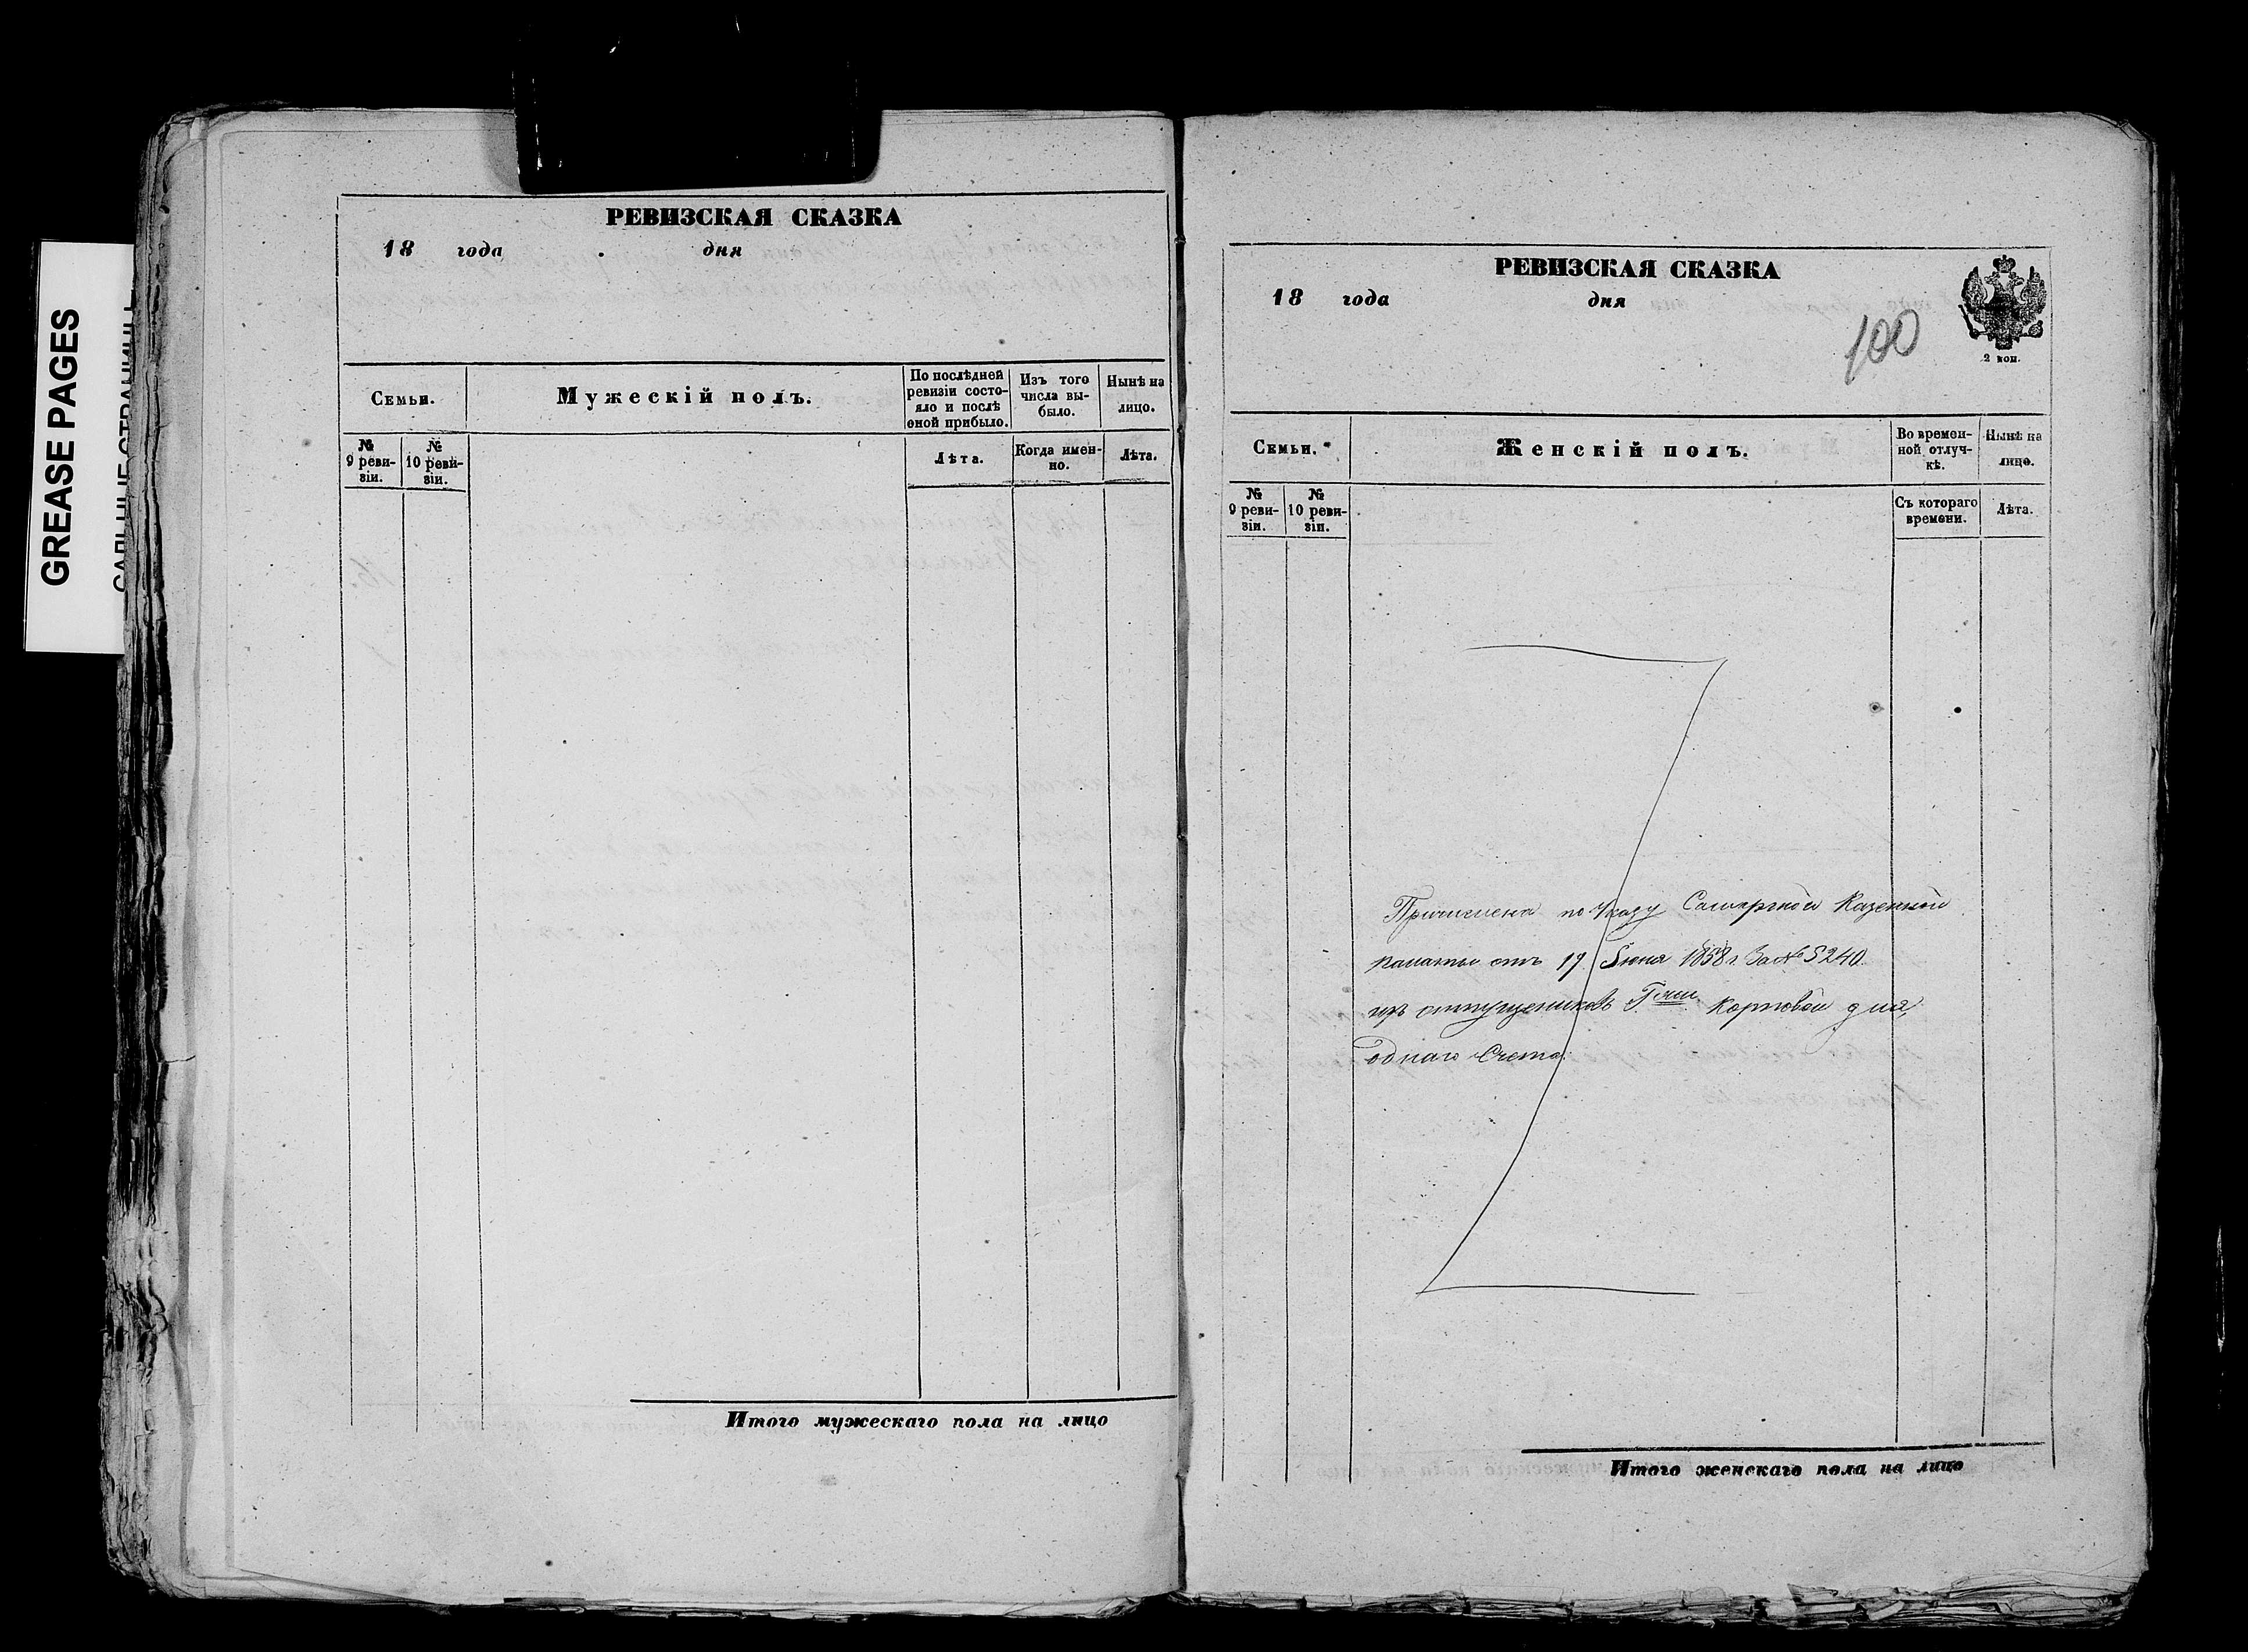 GREASE PAGES
РЕВИЗСКАЯ СКАЗКА
18 года дня
Семьи.
Мужескій полъ.
По послѣдней
ревизіи состо-
яло и послѣ
оной прибыло.
Изъ того
числа вы-
было.
Нынѣ на
лицо.
№
9 реви-
зіи.
№
10 реви-
зіи.
Лѣта.
Когда имен-
но.
Лѣта.
Итого мужескаго пола на лицо
РЕВИЗСКАЯ СКАЗКА
18 года дня
100
2 коп.
Семьи.
Женскій полъ.
Во времен-
ной отлуч-
кѣ.
Нынѣ на
лице.
№
9 реви-
зіи.
№
10 реви-
зіи.
Съ котораго
времени.
Лѣта.
Причислена по Указу Самарской Казенной
палаты отъ 19 Іюня 1858 г. За № 5240
изъ отпущениковъ Карповой для
однаго Счета.
Итого женскаго пола на лицо